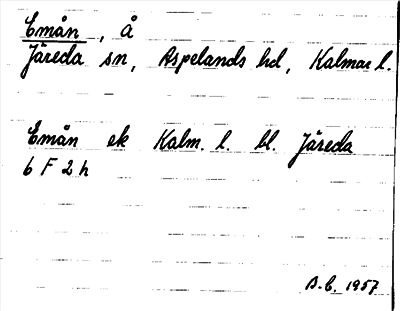 Emån, å
Järeda sn, Aspelands hd, Kalmar l.
Emån ek Kalm. l. bl. Järeda
6 F 2 h
B.-b. 1957